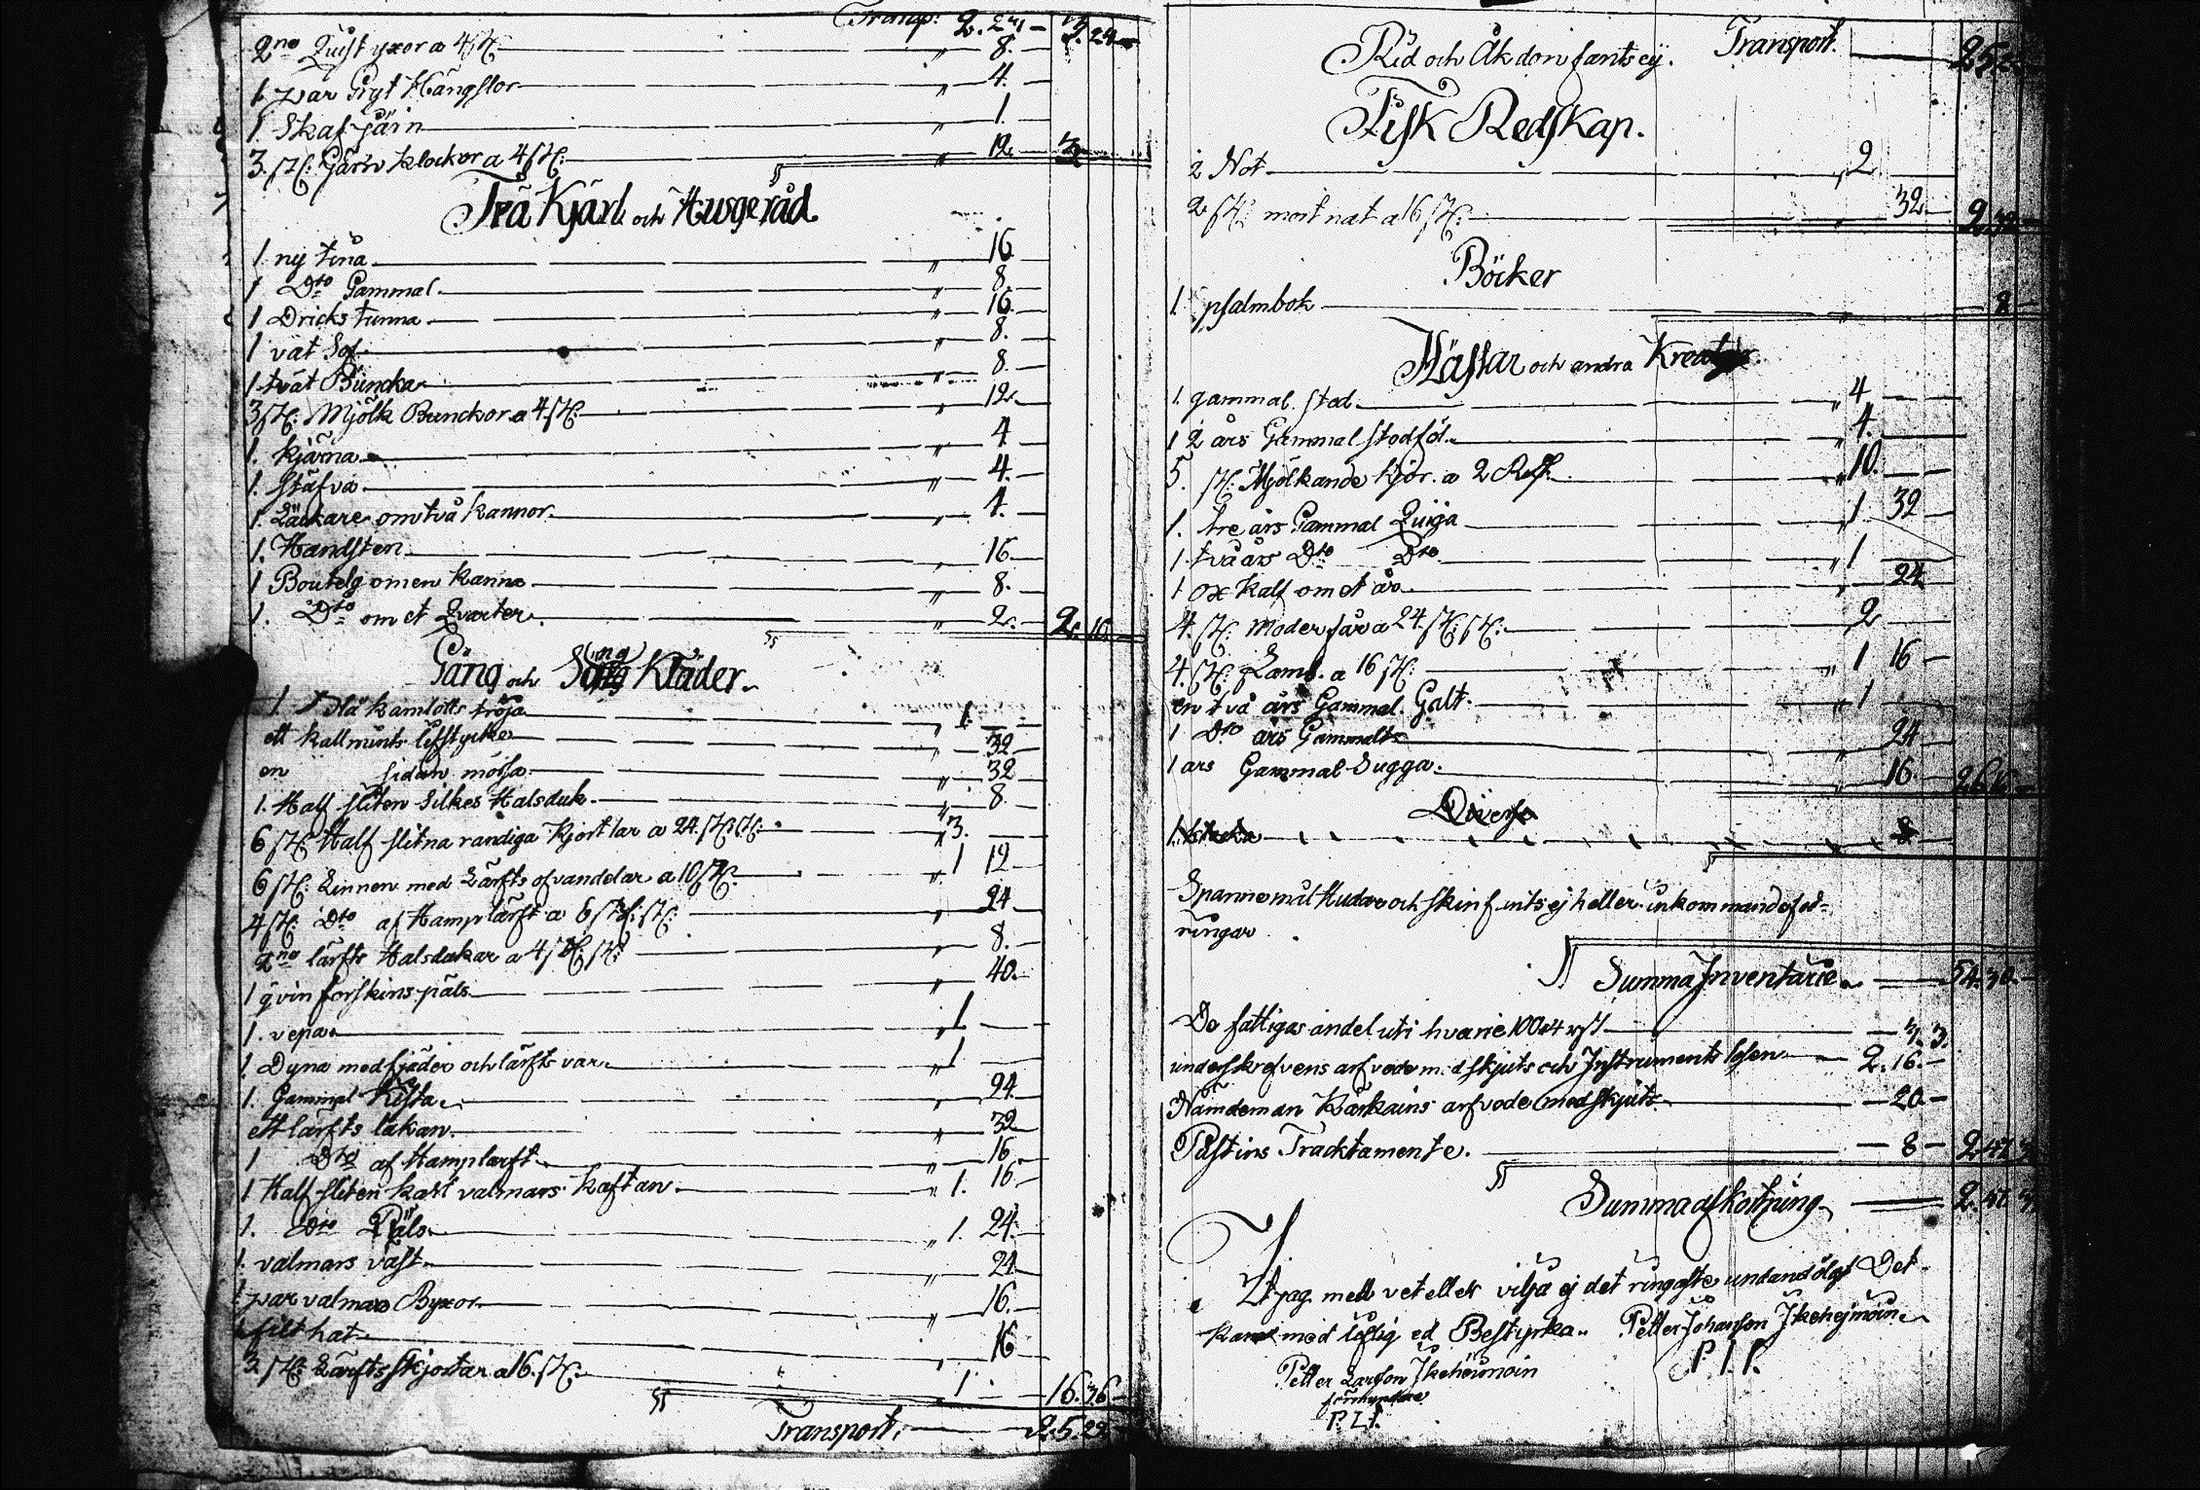 Transp: 2. 24 — 3. 24 —
2no Quist yxor a 4 st: — " 8. —
1. par Gryt Hängslor — " 4. —
1 Skafjärn — " 1. —
3. st: Gärn klockor a 4 st: — " 12. 3
Trä Kjärl och Husgeråd
1 ny tina — " 16
1 Dto Gammal. — " 8.
1 Dricks tunna — " 16.
1 vat So — " 8.
1 tvät Buncka — " 8
3 st: Mjölk Bunckor a 4 st: — " 12.
1. kjärna — " 4
1. stäfva — " 4. —
1. Läckare om två kannor. — " 4. —
1. Handsten — " 16. —
1 Boutelg om en kanna — " 8. —
1. Dto om et Qvarter. — " 2. — 2. 16.
Gång och Säng Kläder.
1. blå kamlotts tröja — " 1. —
ett kallminks lifstycke — " 32 —
en sidan mössa — " 32
1. Half sliten Silkes Halsduk. — " 8.
6 st: Half slitna randiga kjortlar a 24. st: st: — " 3. —
6 st: Linnen med Lärfts ofvandelar a 10 st: — " 1 12
4 st: Dto af Hamplärft a 6 st: st: — " 24
2no lärfts Halsdukar a 4 st: st: — " 8. —
1 qvinfor skins päls — " 40. —
1. vepa — " 1 —
1. Dyna med fjäder och lärfts var — " 1 —
1. Gammal Kista — " 24. —
ett lärfts lakan. — " 32
1 Dto af Hamplärft — " 16.
1 Half sliten karl valmars kaftan — " 1. 16 —
1. Dto Päls — " 1. 24.
1. valmars väst — " 24 —
1. par valmars Byxor — " 16. —
1 filt hat — " 16
3 st: Lärfts skjortar a 16. st: — " 1 — 16. 36 —
Transport. — 25. 22 —
Rid och Åkdon fants ej. Transport. — 25.
Fisk Redskap.
2 Not — " 2
2 st: mort nat a 16 st: — " 32 — 2. 32 —
Böcker
1. psalmbok — " 8 —
Hästar och andra Kreatur
1. gammal. stod — " 4 —
1 2 års Gammal stodföl — " 4. —
5. st: Mjölkande kjor. a 2 Rd — " 10. —
1. tre års Gammal Quiga — " 1 32
1. två års Dto Dto — " 1 —
1 ox kalf om et år — " 24
4. st: moder får a 24. st: st: — " 2
4. st: Lamb. a 16 st: — " 1 16 —
en två års Gammal. Galt. — " 1 —
1 Dto års Gammalt — " 24
1 ars Gammal Sugga. — " 16 —
Diverse
Spannemål Hudar och skin funts ej heller inkommande fod-
ringar
Summa Inventarie. — 54. 30. —
De fattigas andel uti hvarie 100de
underskrefvens arfvode med skjuts och Instruments lösen — 2. 16. —
Nämdeman Karkains arfvode med skjuts. — 20. —
Pastins Tracktamente. — 8 —
Summa afkortning —
At jag med vet eller vilja ej det ringaste undandölgt Det
kan med liflig ed Bestyrka. Petter Johanson Ikeheimoin
P. I. S.
Petter Larson Ikeheimoin
förmyndare
P. L. S.